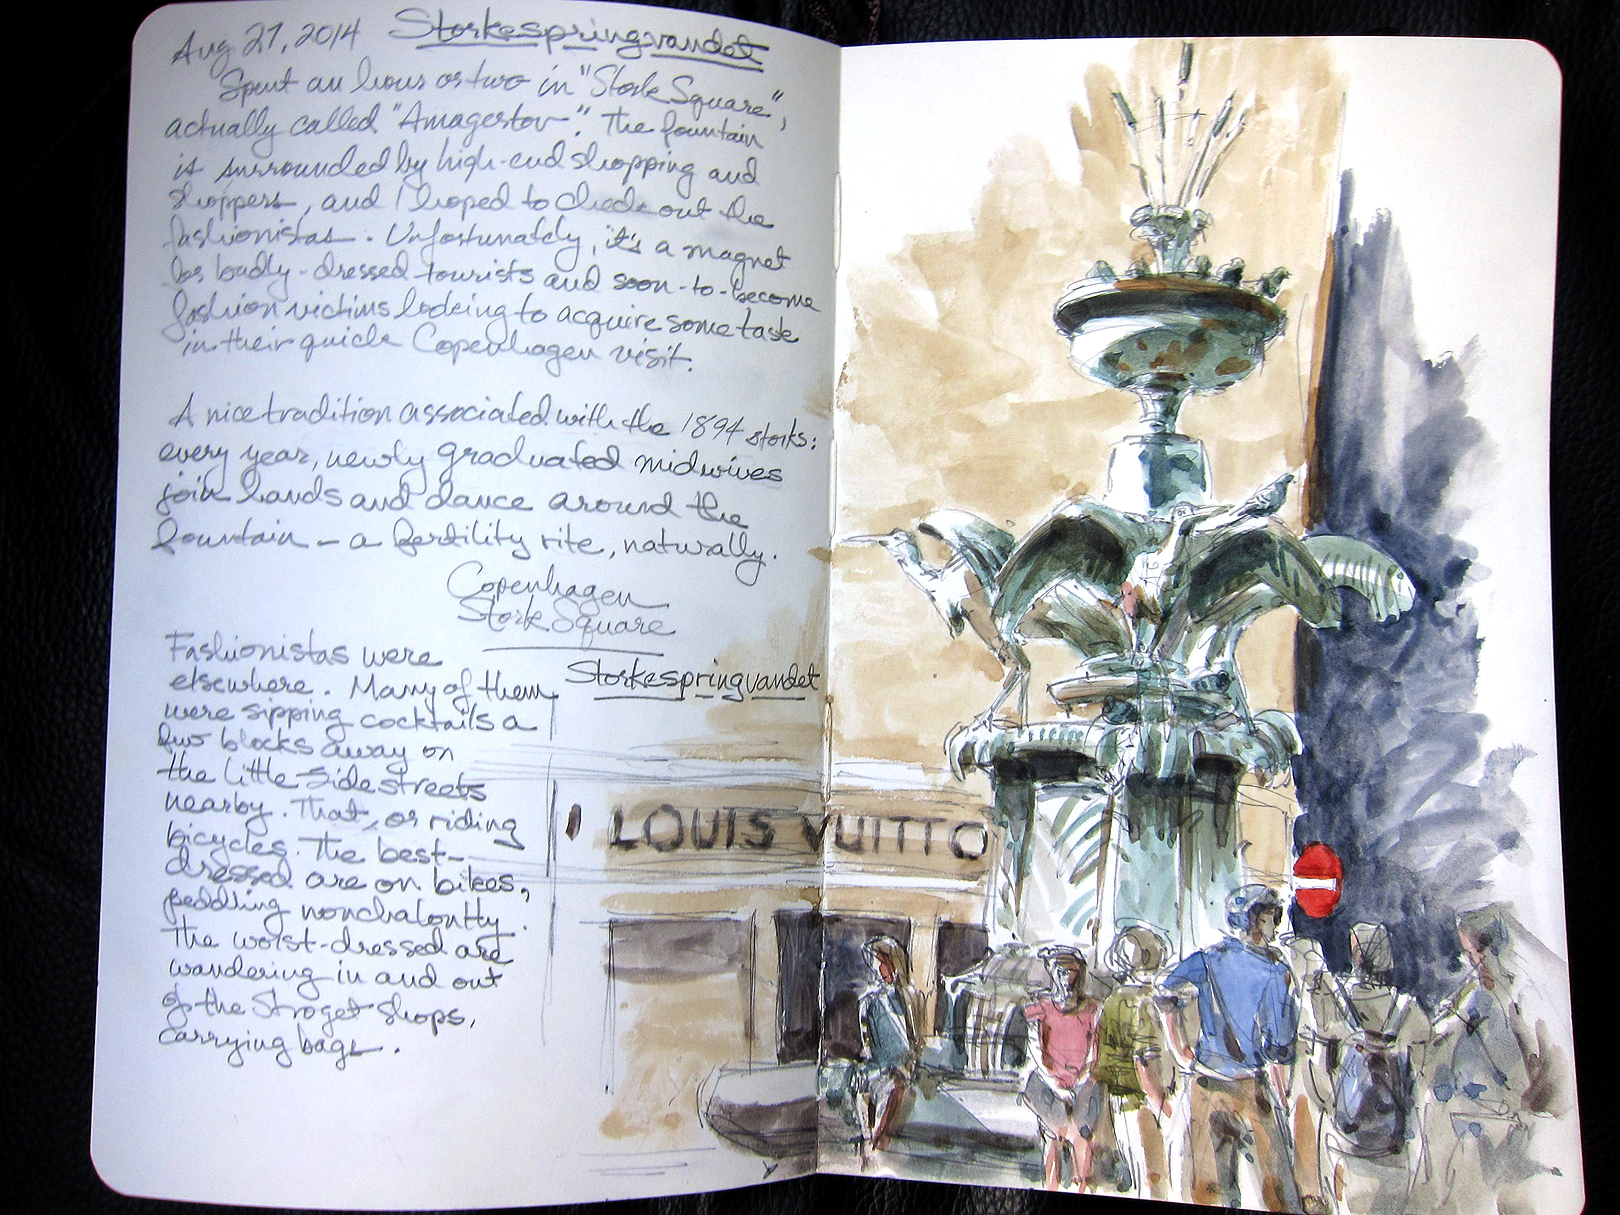 Aug 27, 2014 Storkespringvandet
Spent an hour or two in "Stork Square",
actually called "Amagertov". The fountain
is surrounded by high-end shopping and
shoppers, and I hoped to check out the
fashionistas. Unfortunately, it's a magnet
for badly-dressed tourists and soon-to-become
fashion victims looking to acquire some taste
in their quick Copenhagen visit.
A nice tradition associated with the 1894 storks:
every year, newly graduated midwives
join hands and dance around the
fountain - a fertility rite, naturally.
Copenhagen
Stork Square
Storkespringvandet
Fashionistas were
elsewhere. Many of them
were sipping cocktails a
few blocks away on
the little side streets
nearby. That, or riding
bicycles. The best-
dressed are on bikes,
peddling nonchalantly.
The worst-dressed are
wandering in and out
of the Stroget shops,
carrying bags.
LOUIS VUITTO